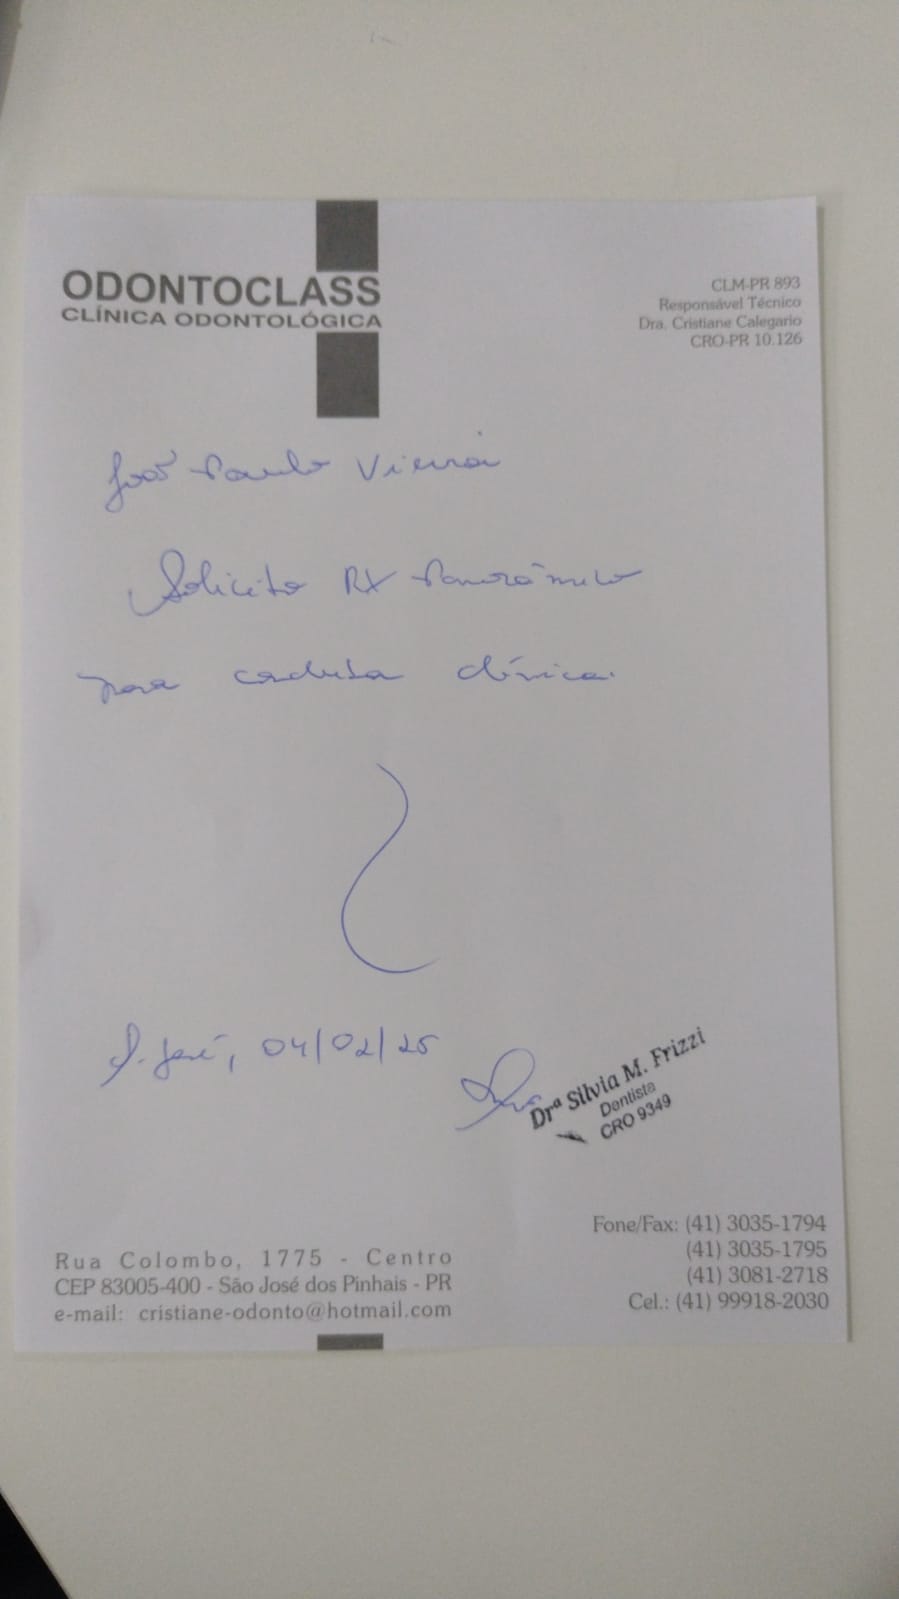 ODONTOCLASS
CLÍNICA ODONTOLÓGICA
CLM-PR 893
Responsável Técnico
Dra. Cristiane Calegario
CRO-PR 10.126
João Paulo Vieira
Solicito RX Panorâmico
para conduta clínica.
S. José, 04/02/25
Drª Silvia M. Frizzi
Dentista
CRO 9349
Rua Colombo, 1775 - Centro
CEP 83005-400 - São José dos Pinhais - PR
e-mail: cristiane-odonto@hotmail.com
Fone/Fax: (41) 3035-1794
(41) 3035-1795
(41) 3081-2718
Cel.: (41) 99918-2030